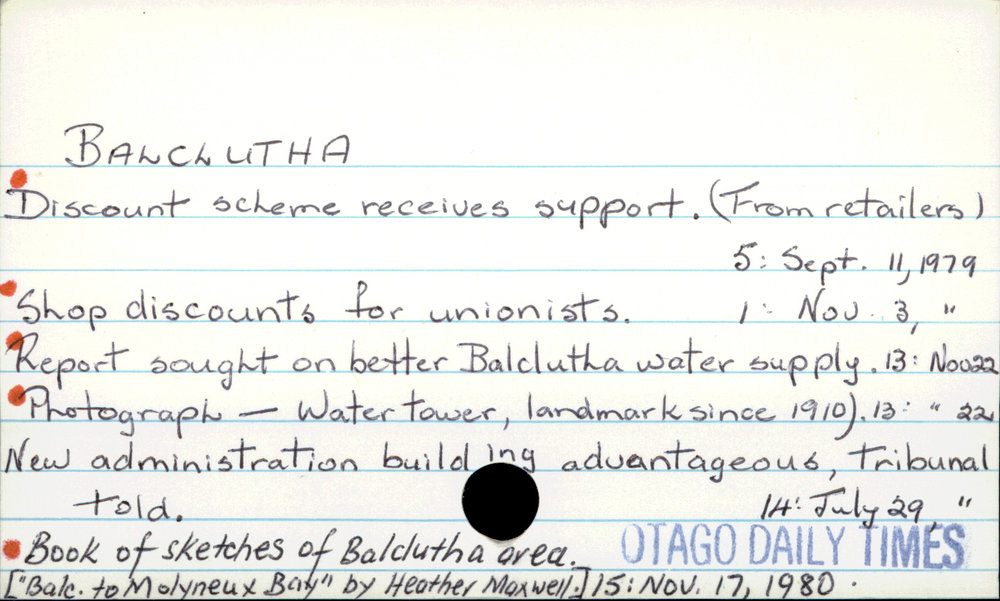 BALCLUTHA
Discount scheme receives support. (From retailers)
5: Sept. 11, 1979
Shop discounts for unionists. 1: Nov. 3, "
Report sought on better Balclutha water supply. 13: Nov 22
Photograph — Water tower, landmark since 1910). 13: " 22
New administration building advantageous, Tribunal
told. 14: July 29, "
Book of sketches of Balclutha area. OTAGO DAILY TIMES
["Balc. to Molyneux Bay" by Heather Maxwell.] 15: Nov. 17, 1980.